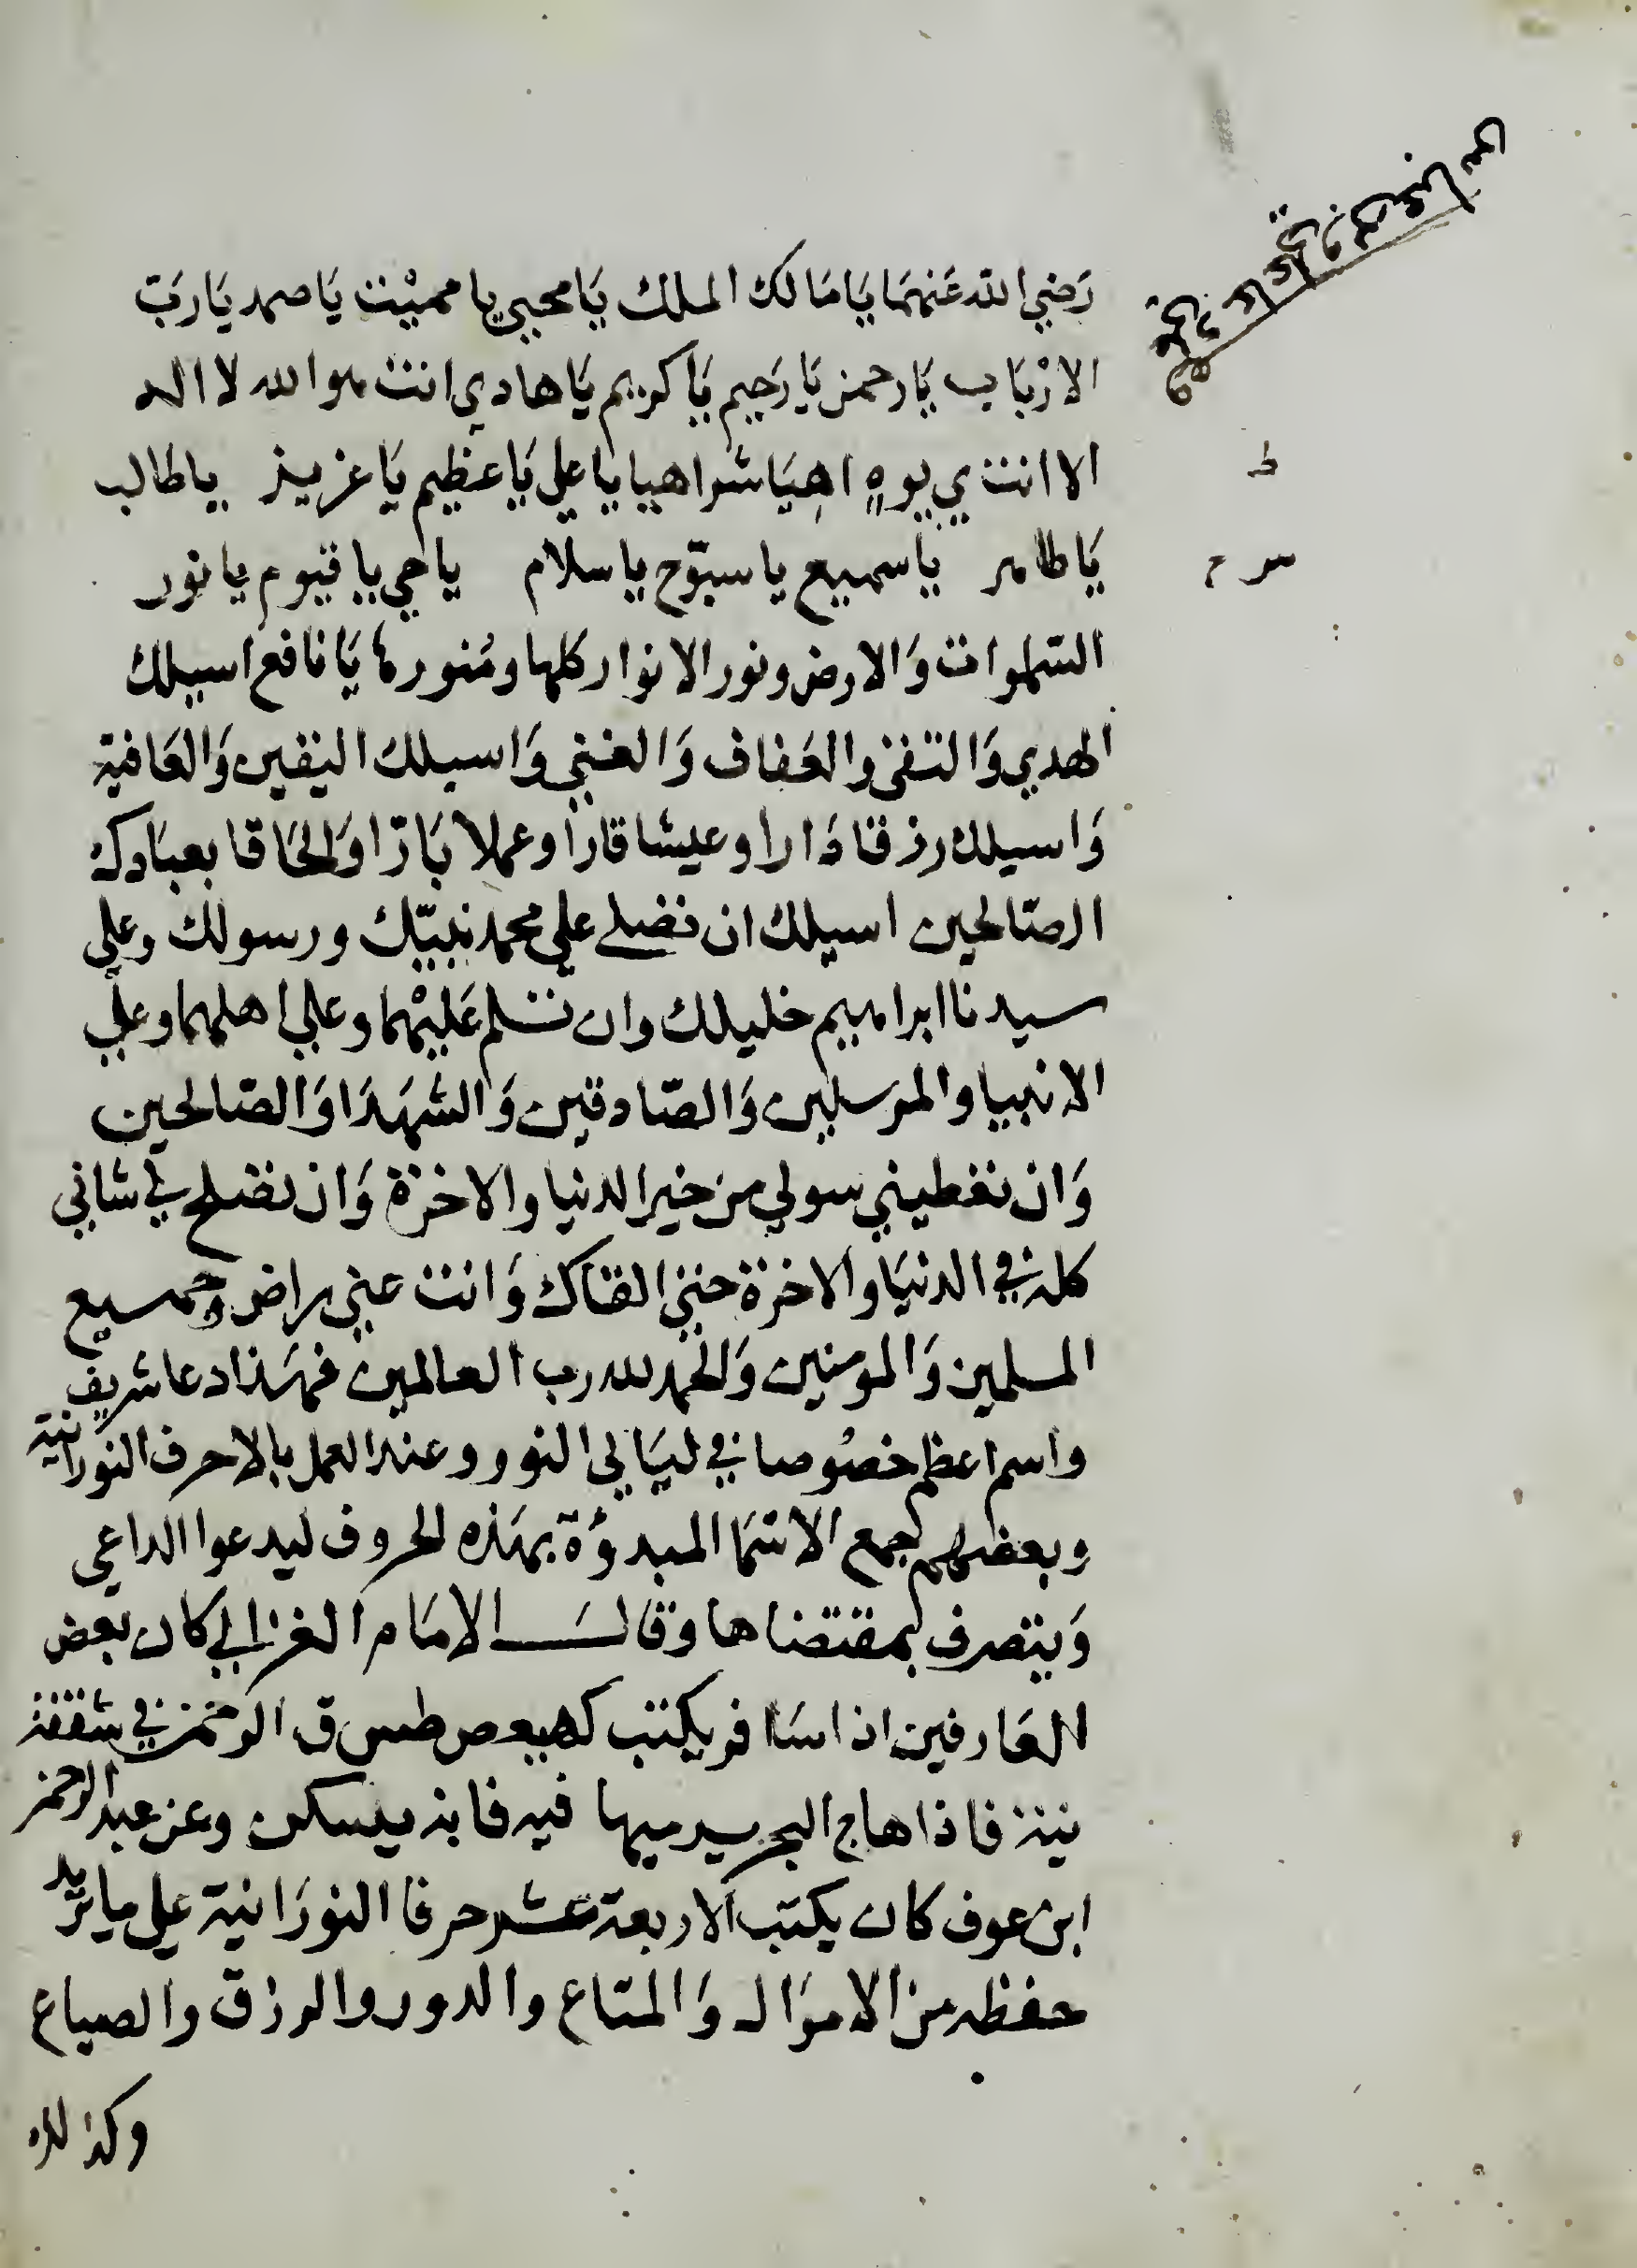 رَضي الله عَنهمَا يَا مَالك الملك يَا محيي يا مميْت يَا صمد يَا رَبّ
الارْبَاب يَا رحمن يَا رَحيم يَا كريم يَا هادي انت هو الله لا اله
الا انت ي يوهٍ اهيَا شراهيا يا علي يَا عظيم يَا عزيز يا طالب
يَا طاهر يا سميع يا سبّوح يا سلام يا حي يا قيوم يا نور
السّموات وَالارض ونور الانوار كلها ومُنورها يَا نافع اسيلك
الهدي وَالتقى والعَفاف وَالغني وَاسيلك اليقين وَالعَافية
وَاسيلك رزقا دَارا وعيشا قارا وعملا بَارّا وَالحَاقا بعبَادك
الصّالحين اسيلك ان تصلي علي محمد نبيّك ورسولك وعلي
سيدنا ابراهيم خليلك وان تسلم عَليْهما وعلي اهلهما وعلي
الانبيا والمرسلين وَالصّادقين وَالشهدَا وَالصّالحين
وَان تعطيني سولي من خير الدنيا والاخرة وَان تصلح لي شاني
كله في الدنيَا والاخرة حتي القاك وَانت عني راض وجميع
المسلمين وَالمومنين وَالحمد لله رب العالمين فهَذا دعا شريف
واسم اعظم خصُوصا في ليَالي النور وعند العمل بالاحرف النورَانية
وبعضهم جمع الاسمَا المبدوُة بهَذه الحروف ليدعوا الداعي
وَيتصرف بمقتضاها وقالَ الامَام الغزالي كان بعض
العَارفين اذا سَافر يكتب كهيعص طس ق الرحمن في شقفة
نية فاذا هاج البحر يرميها فيه فانه يسكن وعن عبد الرحمن
ابن عوف كان يكتب الاربعة عشر حرفا النورَانية علي ما يريد
حفظه من الاموَال وَالمتاع والدور والرزق والضياع
وكذلك
ط